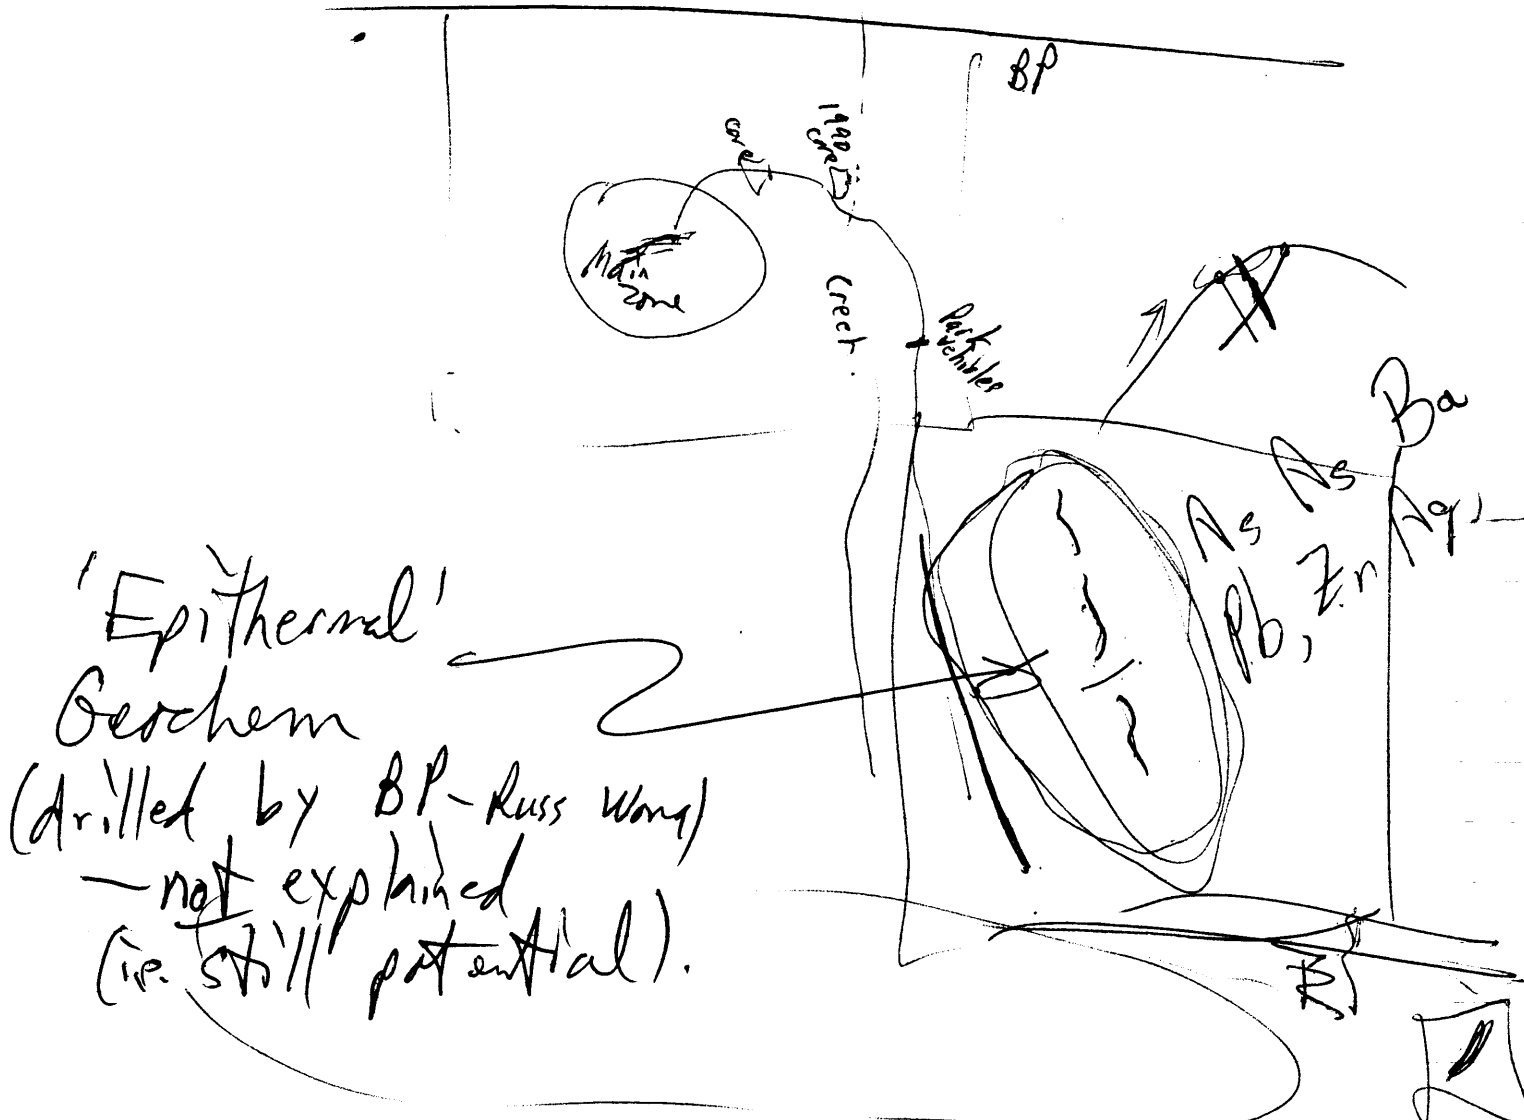 BP
1990
core
core
Main
zone
Creek
Park
vehicles
Ba
As
As
Ag,
Pb, Zn
'Epithermal'
Geochem
(drilled by BP-Russ Wong)
—not explained
(i.e. still potential).